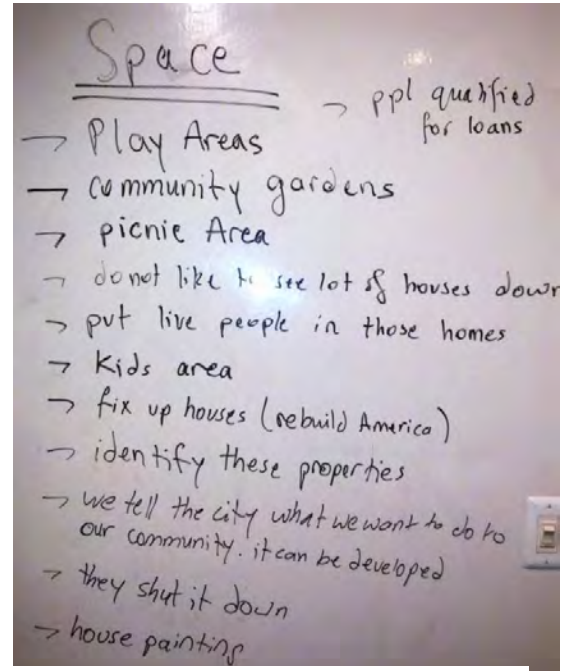 Space
→ ppl qualified
for loans
→ Play Areas
→ community gardens
→ picnic Area
→ do not like to see lot of houses down
→ put live people in those homes
→ Kids area
→ fix up houses (rebuild America)
→ identify these properties
→ we tell the city what we want to do to
our community. it can be developed
→ they shut it down
→ house painting